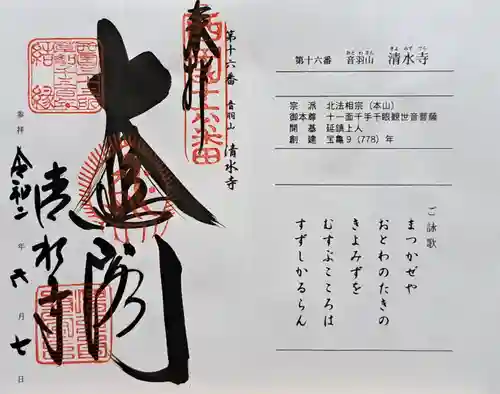 第十六番 音羽山 清水寺
奉拝
大悲閣
清水寺
参拝 令和二年 六月 七日
西国十六番
結縁
第十六番 音羽山 清水寺
おとわさん きよみずでら
宗派 北法相宗(本山)
御本尊 十一面千手千眼観世音菩薩
開基 延鎮上人
創建 宝亀9(778)年
ご詠歌
まつかぜや
おとわのたきの
きよみずを
むすぶこころは
すずしかるらん